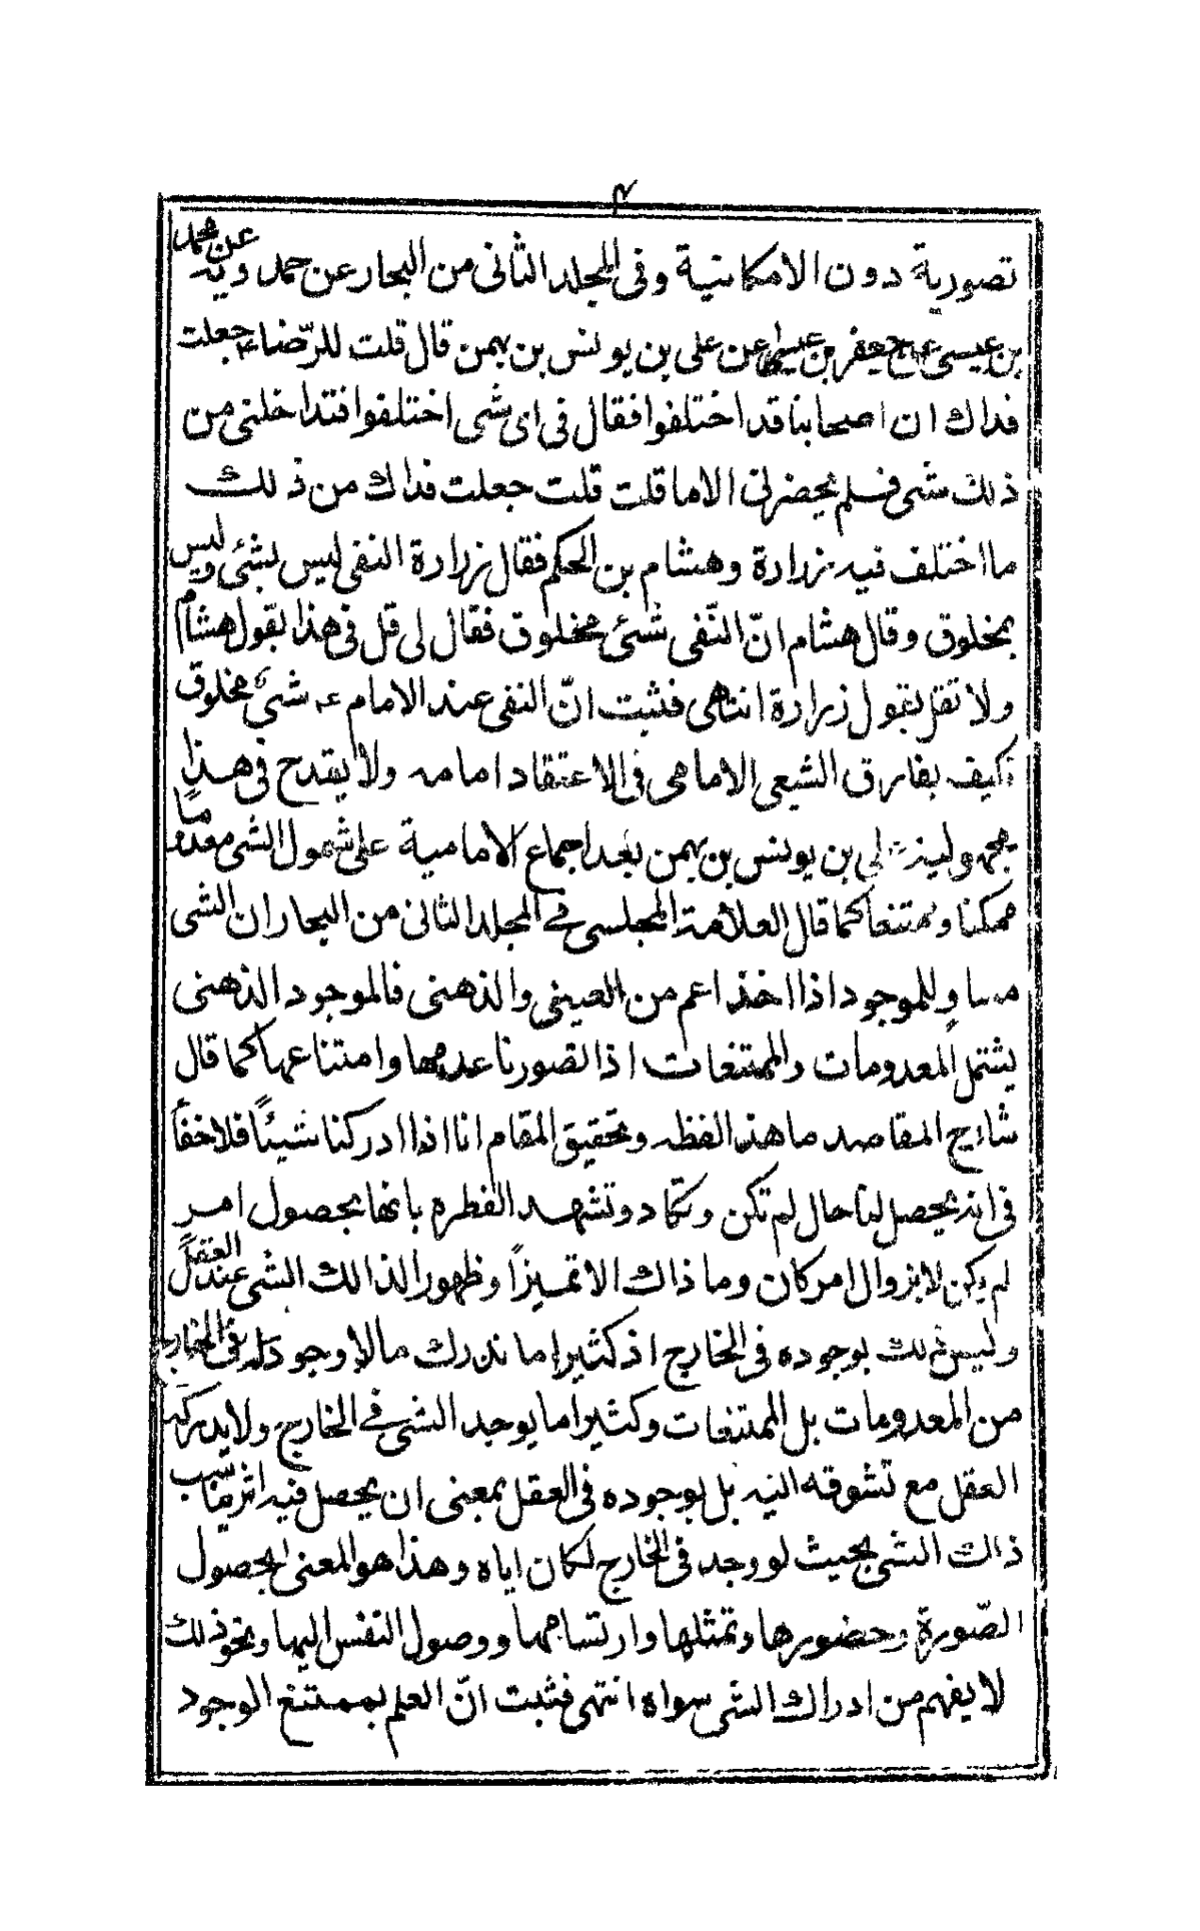 ۴
تصورية دون الامكانية وفى المجلد الثانى من البحار عن حمدويه عن محمد
بن عيسى عن جعفر بن عيسى عن على بن يونس بن بهمن قال قلت للرّضاء جعلت
فداك ان اصحابنا قد اختلفوا فقال فى اى شى اختلفوا فتداخلنى من
ذلك شى فلم يحضرنى الا ما قلت قلت جعلت فداك من ذلك
ما اختلف فيه زرارة وهشام بن الحكم فقال زرارة النفى ليس بشئى وليس
بمخلوق وقال هشام انّ النّفى شئى مخلوق فقال لى قل فى هذا بقول هشام
ولا تقل بقول زرارة انتهى فثبت انّ النفى عند الامام ء شئ مخلوق
كيف يفارق الشيعى الامامى فى الاعتقاد امامه ولا يقدح فى هذا
مجهولية على بن يونس بن بهمن بعد اجماع الامامية على شمول الشى معدوما
ممكنا وممتنعا كما قال العلامة المجلسى فے المجلد الثانى من البحار ان الشى
مساوٍ للموجود اذا اخذ اعم من العينى والذهنى فالموجود الذهنى
يشتمل المعدومات والممتنعات اذا تصورنا عدمها وامتناعها كما قال
شارح المقاصد ما هذا لفظه وتحقيق المقام انا اذا ادركنا شيئاً فلا خفأ
فى انه يحصل لنا حال لم تكن وتكاد وتشهد الفطرة بانها بحصول امر
لم يكن لا بزوال امر كان وما ذاك الا تميزاً وظهورا لذالك الشى عند العقل
وليس ذلك بوجوده فى الخارج اذ كثيرا ما ندرك مالا وجود له فى الخارج
من المعدومات بل الممتنعات وكثيرا ما يوجد الشى فے الخارج ولا يدركه
العقل مع تشوقه اليه بل بوجوده فى العقل بمعنى ان يحصل فيه اثر يناسب
ذاك الشى بحيث لو وجد فى الخارج لكان اياه وهذا هو المعنى بحصول
الصّورة وحضورها وتمثلها وارتسامها ووصول النفس اليها ونحو ذلك
لا يفهم من ادراك الشى سواه انتهى فثبت انّ العلم بممتنع الوجود